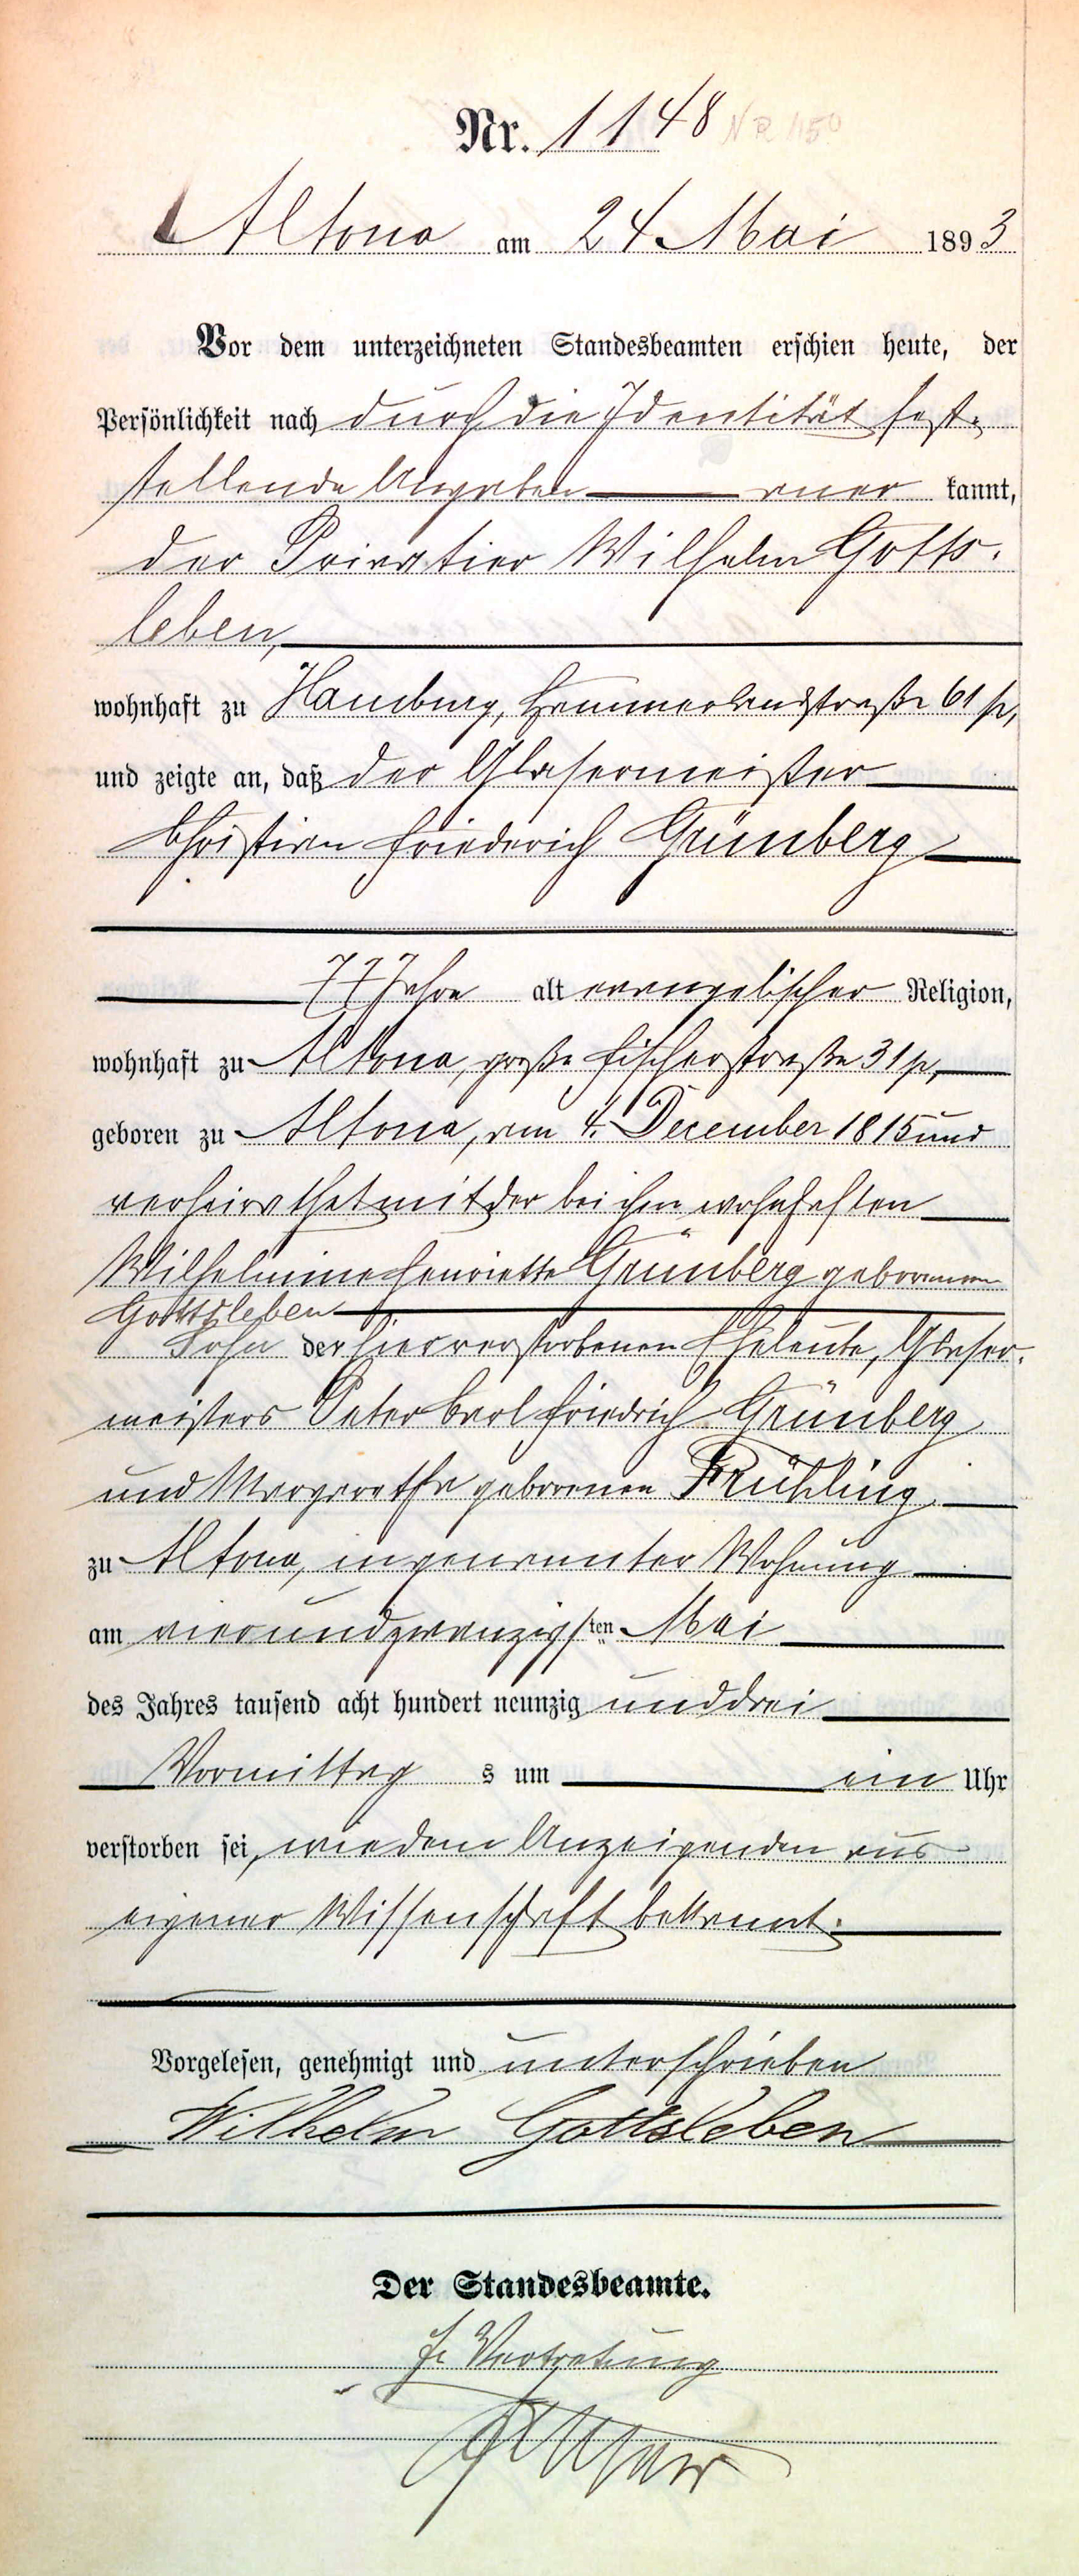 Nr. 1148 NR 1150
Altona am 24 Mai 1893
Vor dem unterzeichneten Standesbeamten erschien heute, der
Persönlichkeit nach durch die Identität fest-
stellende Angaben aner kannt,
der Privatier Wilhelm Gotts-
leben,
wohnhaft zu Hamburg, Hammerlandstraße 61 p,
und zeigte an, daß der Glasermeister
Christian Friederich Grünberg
77 Jahre alt evangelischer Religion,
wohnhaft zu Altona, große Fischerstraße 31 p,
geboren zu Altona, am 4. December 1815 und
verheirathet mit der bei ihm wohnhaften
Wilhelmine Henriette Grünberg geborenen
Gottsleben
Sohn der hier verstorbenen Eheleute, Glaser-
meisters Peter Carl Friedrich Grünberg
und Margaretha geborenen Frühling
zu Altona, in genannter Wohnung
am vierundzwanzigsten Mai
des Jahres tausend acht hundert neunzig und drei
Vormittag s um ein Uhr
verstorben sei, wie dem Anzeigenden aus
eigener Wissenschaft bekannt.
Vorgelesen, genehmigt und unterschrieben
Wilhelm Gottsleben
Der Standesbeamte.
In Vertretung